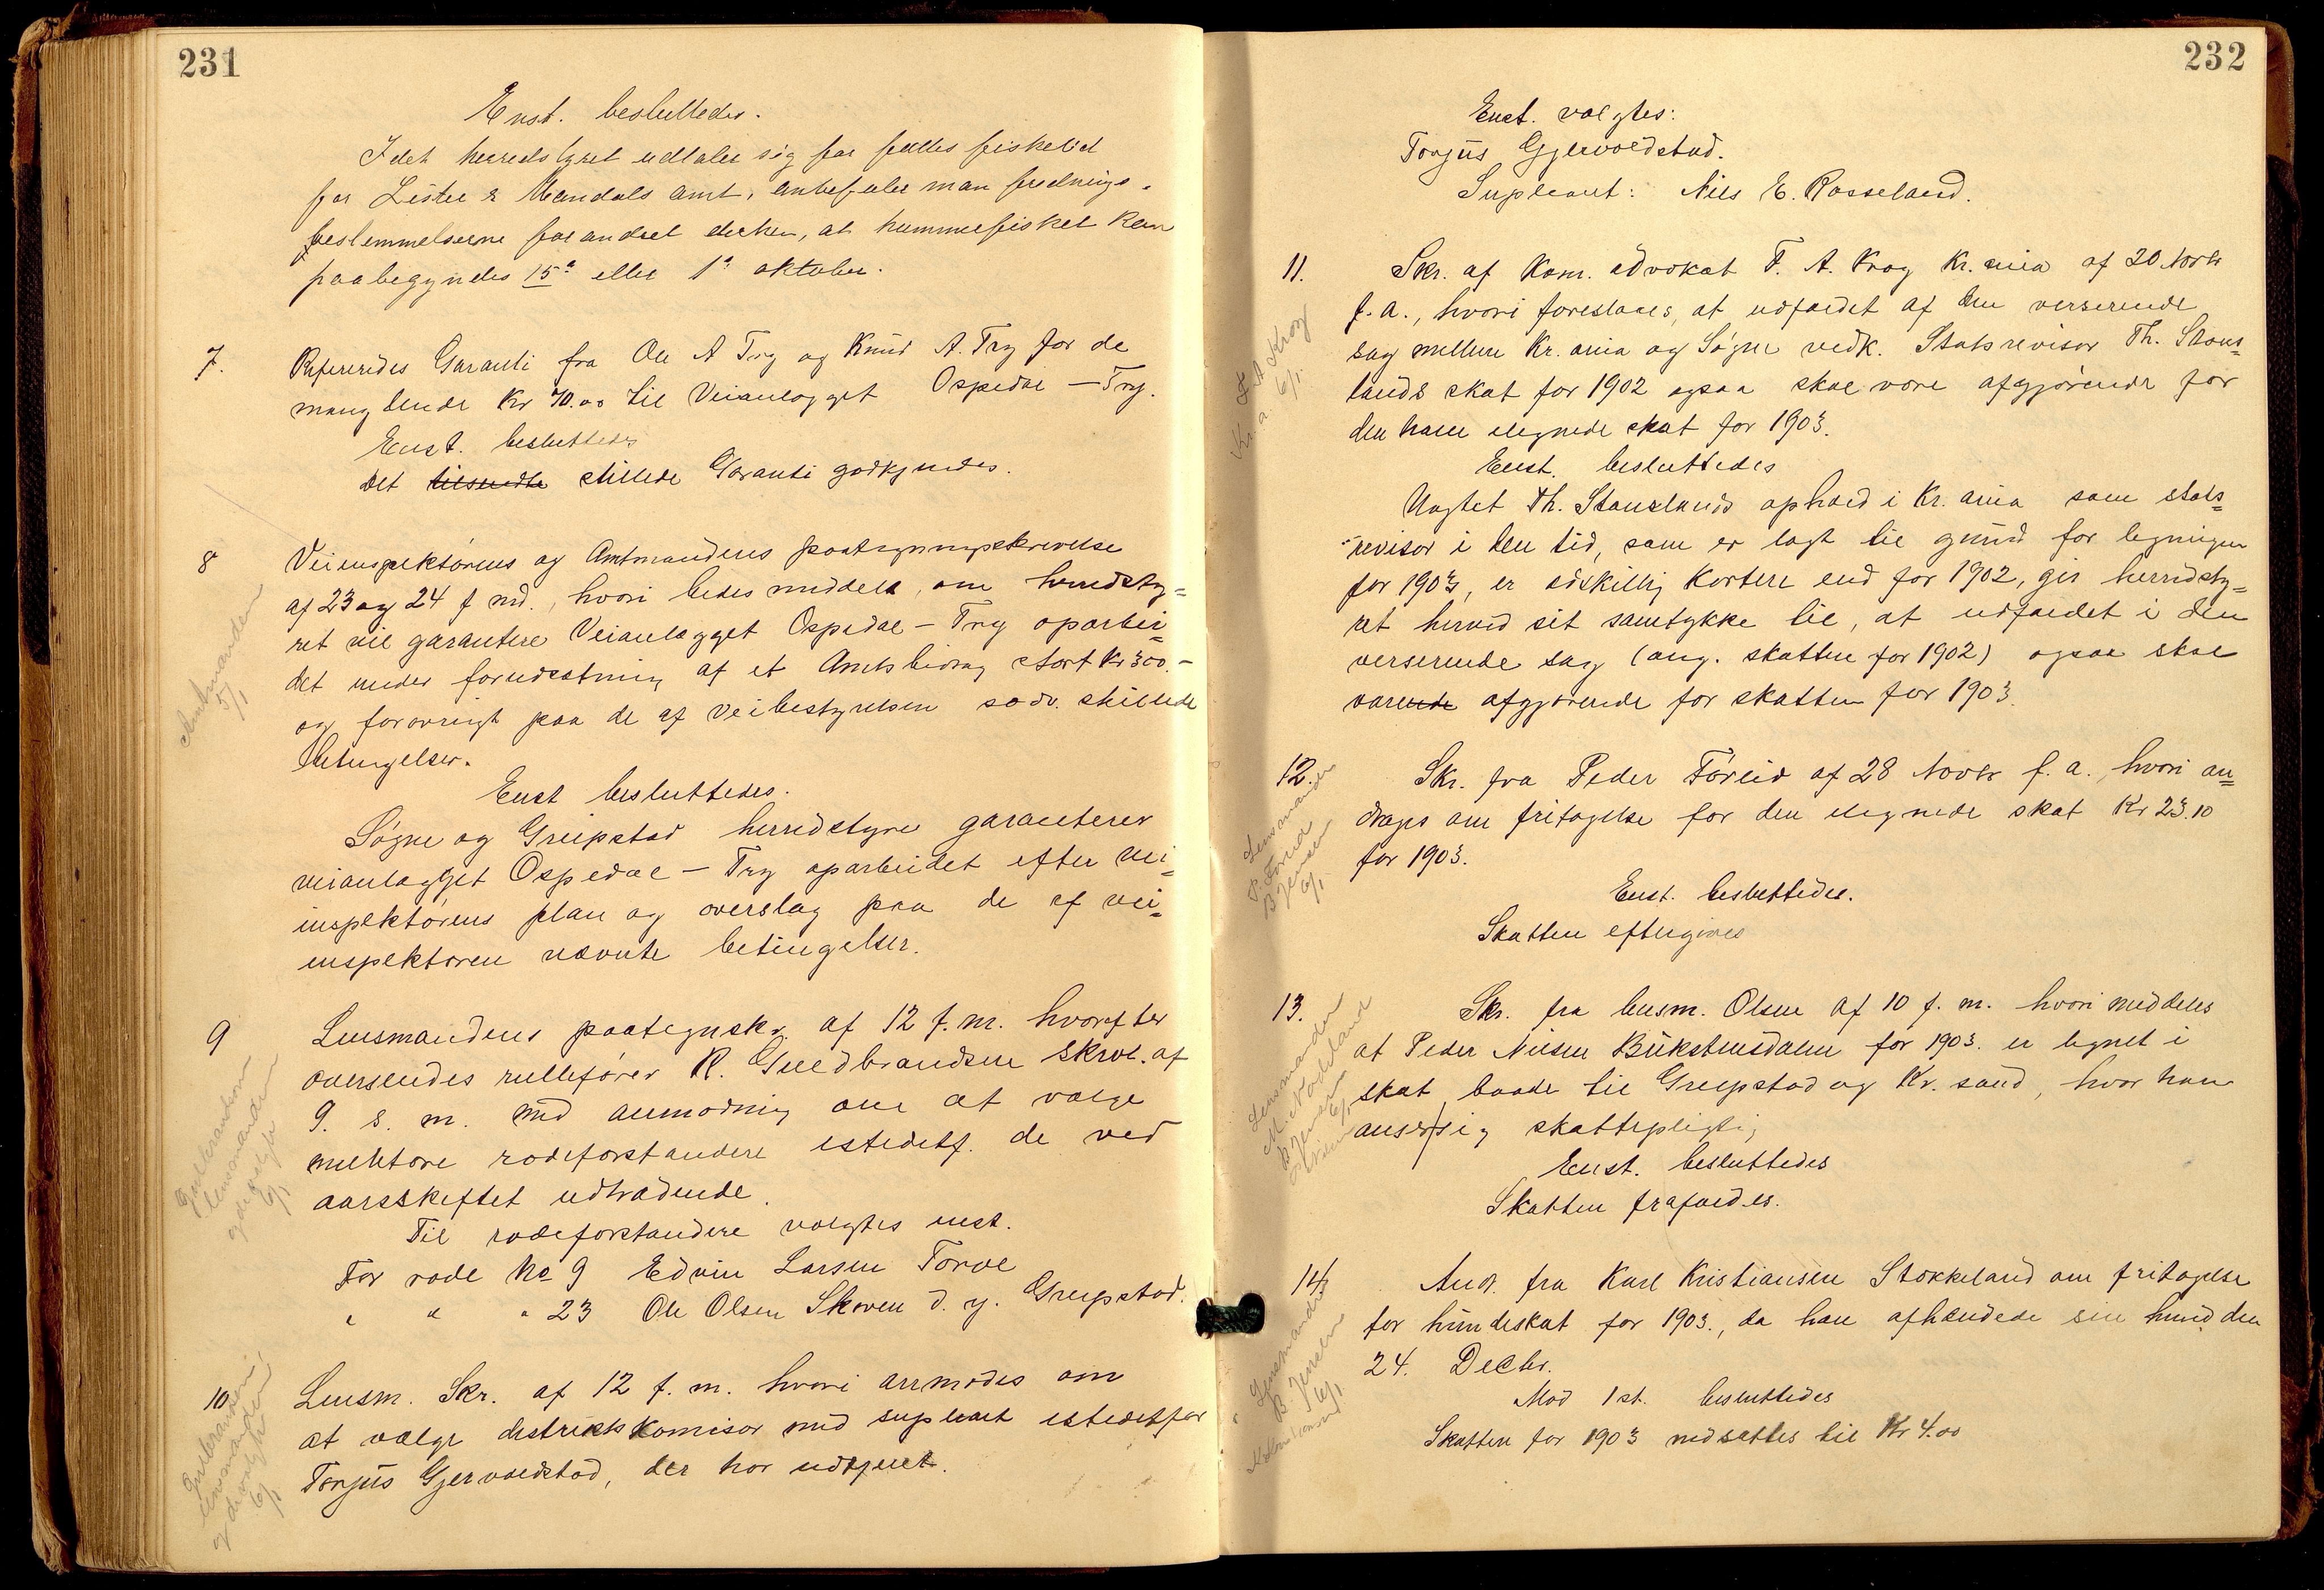 231
Enst. besluttedes.
Idet herredstyret udtaler sig for fælles fisketid
for Lister & Mandals amt, anbefaler man frednings-
bestemmelserne forandret derhen, at hummerfisket kan
paabegyndes 15de eller 1ste oktober.
7. Refereredes Garanti fra Ole A Try og Knud A. Try for de
manglende Kr 70.00 til Veianlægget Ospedal – Try.
Enst. besluttedes
Det tilsendte stillede Garanti godkjendes.
8 Veiinspektørens og Amtmandens paategningsskrivelse
af 23 og 24 f md., hvori bedes meddelt, om herredsty=
ret vil garantere Veianlægget Ospedal – Try oparbei=
det under forudsætning af et Amtsbidrag stort Kr 300.–
og forøvrigt paa de af veibestyrelsen sedv. stillede
betingelser.
Amtmanden
5/1
Enst besluttedes.
Søgne og Greipstad herredstyre garanterer
veianlægget Ospedal – Try oparbeidet efter vei=
inspektørens plan og overslag paa de af vei=
inspektøren nævnte betingelser.
9 Lensmandens paategnskr. af 12 f. m. hvorefter
oversendes rulleførers R. Guldbrandsen skriv. af
9. s. m. med anmodning om at vælge
nyvalgte rodeforstandere istedetf. de ved
aarsskiftet udtrædende.
Gulbrandsen
lensmanden
og de valgte
6/1
Til rodeforstandere valgtes enst.
For rode No 9 Edvin Larsen Torve
" " " 23 Ole Olsen Skoven d. y. Greipstad.
10 Lensm. Skr. af 12 f. m. hvori anmodes om
at vælge distriktskomisær med supleant istedetfor
Torjus Gjervoldstad, der har udtjent.
Gulbrandsen,
lensmanden,
og de valgte
6/1
232
Enst. valgtes:
Torjus Gjervoldstad.
Supleant: Nils E. Rosseland.
11. Skr. af Kom. advokat F. A. Krog Kr.ania af 20 Novbr
f. a., hvori foreslaaes, at udfaldet af den verserende
sag mellem Kr.ania og Søgne vedk. Statsrevisor Th. Stous=
lands skat for 1902 ogsaa skal være afgjørende for
den ham ilignede skat for 1903.
F. A Krog
Kr.a 6/1.
Enst. besluttedes
Uagtet Th. Stouslands ophold i Kr.ania som stats=
revisor i den tid, som er lagt til grund for ligningen
for 1903, er adskillig kortere end for 1902, gir herredsty=
ret herved sit samtykke til, at udfaldet i den
verserende sag (ang. skatten for 1902) ogsaa skal
værende afgjørende for skatten for 1903.
12. Skr. fra Peder Føreid af 28 Novbr f. a., hvori an=
drages om fritagelse for den ilignede skat Kr 23.10
for 1903.
Lensmanden
P. Føreid
B Jensen
6/1
Enst. besluttedes.
Skatten eftergives
13. Skr. fra lensm. Olsen af 10 f. m. hvori meddeles
at Peder Nilsen Bukstensdalen for 1903. er lignet i
skat baade til Greipstad og Kr.sand, hvor han
anser sig skattepligtig
Lensmanden
M. Nodeland
B Jensen
6/1
Enst. besluttedes
Skatten frafaldes.
14. And. fra Karl Kristiansen Stokkeland om fritagelse
for hundeskat for 1903., da han afhændede sin hund den
24. Decbr.
Lensmanden
B. Jensen
6/1.
Mod 1 st. besluttedes
Skatten for 1903 nedsættes til Kr 4.00